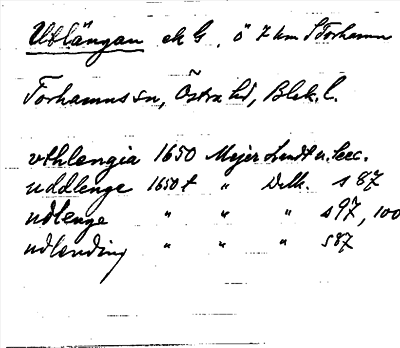 Utlängan ek G, ö 7 km S Torhamn
Torhamns sn, Östra hd, Blek. l.
vthlengia 1650 Mejer Landt u. Seec.
uddlenge 1650 t " Delk. s 87
udlenge " " " s 97, 100
udlending " " " s 87